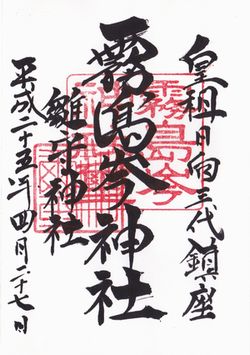 皇祖日向三代鎮座
霧島岑神社
雛守神社
平成二十五年四月二十七日